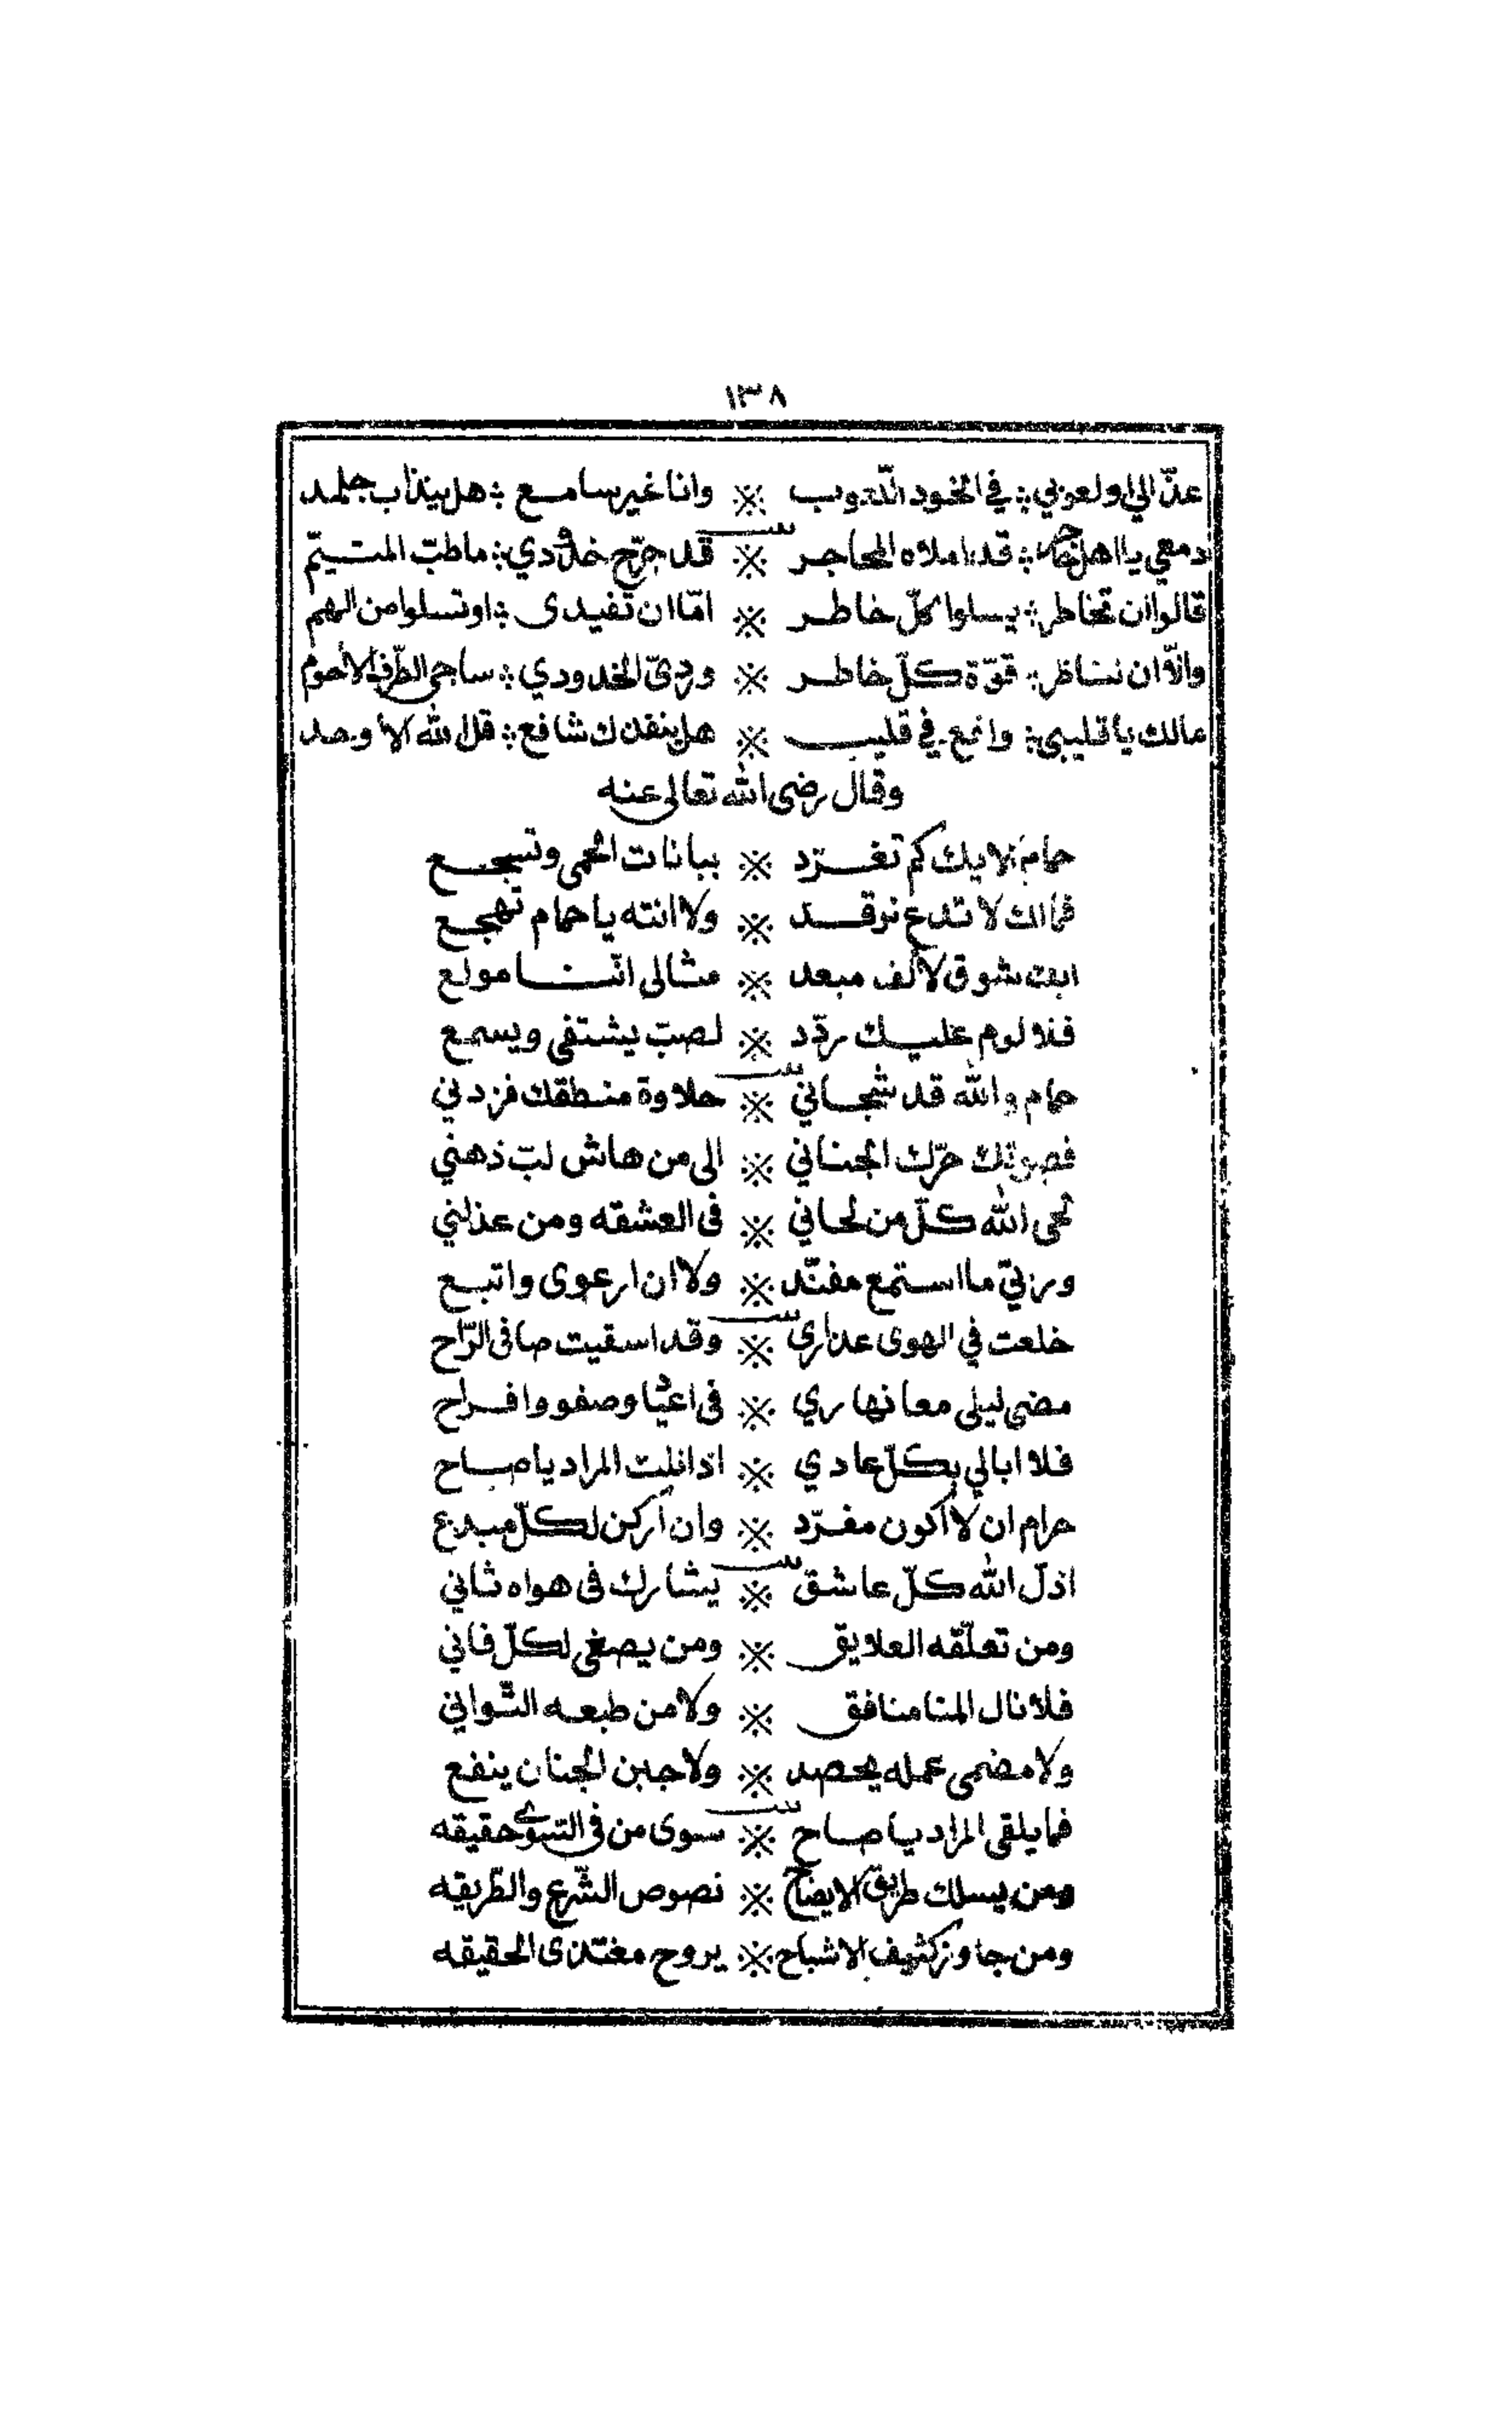 ١٣٨
عذّالي اولعوبي ؞ في الخود اللعوب ※ وانا غير سامع ؞ هل يذاب جلمد
دمعي يا اهل حاجر ؞ قد املاه المحاجر ※ قد جرّح خدودي ؞ ما طبّ المتيّم
قالوا ان تخاطر ؞ يسلوا كلّ خاطر ※ امّا ان تفيدى ؞ او تسلوا من الهم
والّا ان نناظر ؞ قوّة كلّ خاطر ※ وردىّ الخدودي ؞ ساجى الطّرف الاحوم
مالك يا قليبى ؞ وانمع في قليب ※ هل ينقذك شافع ؞ قل لله الاوحد
وقال رضى الله تعالى عنه
حمام الايك كم تغرّد ※ ببانات الحمى وتسجع
فمالك لا تدع نرقد ※ ولا انته يا حمام تهجع
ابك شوق لالف مبعد ※ مثالى انّنا مولع
فلا لوم عليك ردّد ※ لصبّ يشتفى ويسمع
حمام والله قد شجاني ※ حلاوة منطقك فزدني
فصوتك حرّك الجناني ※ الى من هاش لبّ ذهني
لحى الله كلّ من لحاني ※ فى العشقه ومن عذلني
وربّي ما استمع مفنّد ※ ولا ان ارعوى واتبع
خلعت في الهوى عذاري ※ وقد اسقيت صافى الرّاح
مضى ليلى معا نهاري ※ فى اعياد وصفو وافراح
فلا ابالي بكلّ عادي ※ اذا نلت المراد يا صاح
حرام ان لا اكون مفرّد ※ وان اركن لكلّ مبدع
اذلّ الله كلّ عاشق ※ يشارك فى هواه ثاني
ومن تعلّقه العلايق ※ ومن يصغى لكلّ فاني
فلا نال المنا منافق ※ ولا من طبعه التّواني
ولا مضمى عمله يحصد ※ ولا جبن الجنان ينفع
فما يلقى المراد يا صاح ※ سوى من فى السّوى حقيقه
ومن يسلك طريق الايضاح ※ نصوص الشّرع والطّريقه
ومن جاوز كثيف الاشباح ※ يروح مغتذى الحقيقه